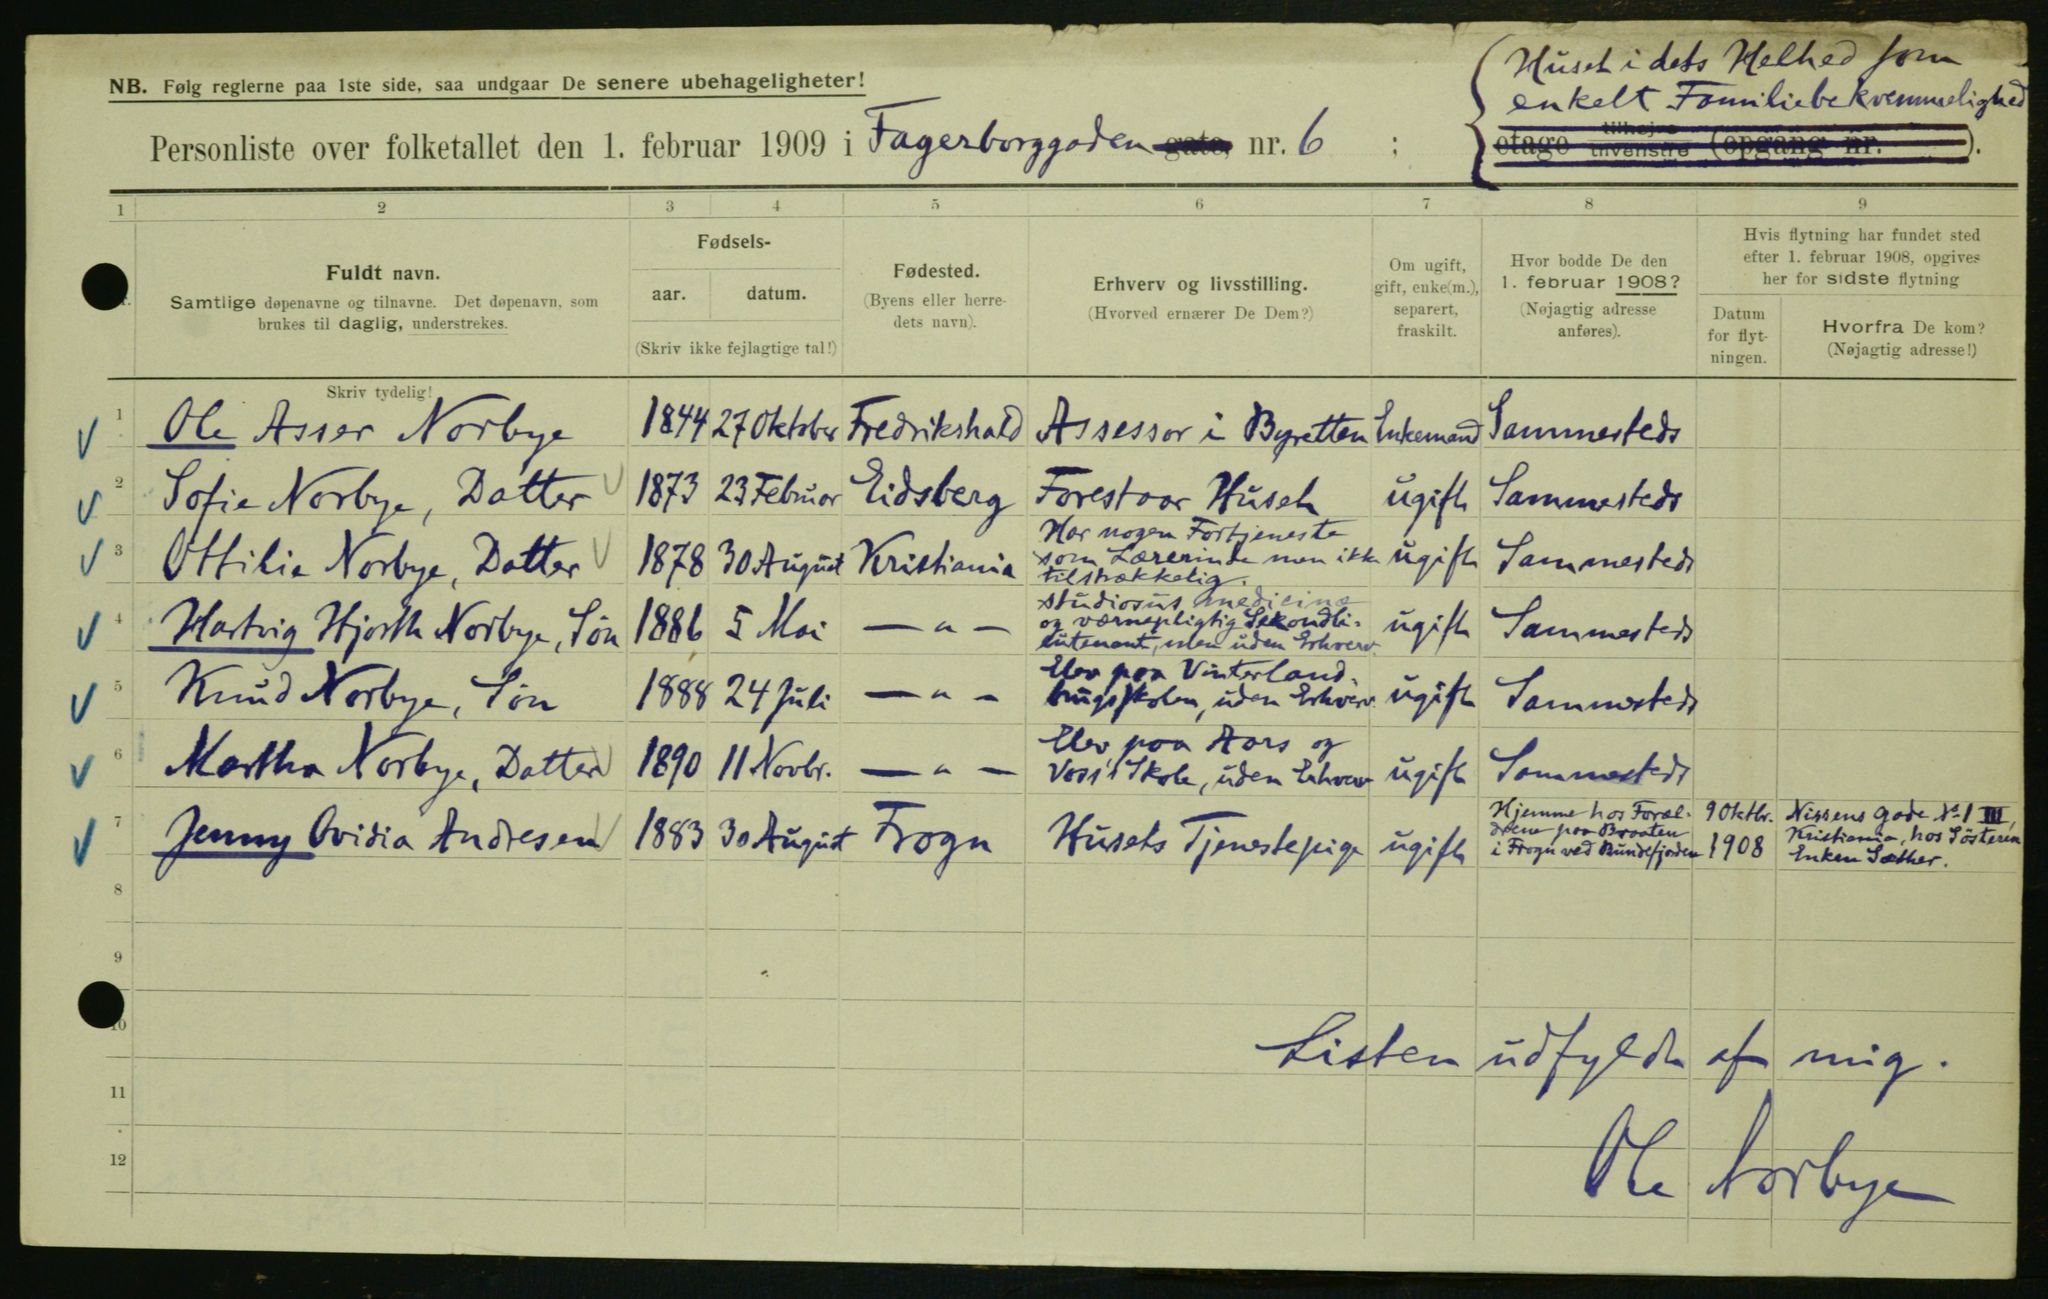 Huset i dets Helhed som
enkelt Familiebekvemmelighed
NB. Følg reglerne paa 1ste side, saa undgaar De senere ubehageligheter!
Personliste over folketallet den 1. februar 1909 i Fagerborggaden gate, nr. 6 ; etage tilhøjre tilvenstre (opgang nr. ).
1 2 3 4 5 6 7 8 9
Fuldt navn.
Samtlige døpenavne og tilnavne. Det døpenavn, som
brukes til daglig, understrekes.
Skriv tydelig!
Fødsels-
aar. datum.
(Skriv ikke fejlagtige tal!)
Fødested.
(Byens eller herre-
dets navn).
Erhverv og livsstilling.
(Hvorved ernærer De Dem?)
Om ugift,
gift, enke(m.),
separert,
fraskilt.
Hvor bodde De den
1. februar 1908?
(Nøjagtig adresse
anføres).
Hvis flytning har fundet sted
efter 1. februar 1908, opgives
her for sidste flytning
Datum
for flyt-
ningen.
Hvorfra De kom?
(Nøjagtig adresse!)
1 Ole Asser Norbye 1844 27 Oktober Fredrikshald Assessor i Byretten Enkemand Sammesteds
2 Sofie Norbye, Datter 1873 23 Februar Eidsberg Forestaar Huset ugift Sammesteds
3 Ottilie Norbye, Datter 1878 30 August Kristiania Har nogen Fortjeneste
som Lærerinde men ikke
tilstrækkelig. ugift Sammesteds
4 Hartvig Hjorth Norbye, Søn 1886 5 Mai — " — studiosus medicinæ
og værnepligtig Sekondlö-
iutenant, men uden Erhverv. ugift Sammesteds
5 Knud Norbye, Søn 1888 24 Juli — " — Elev paa Vinterland-
brugsskolen, uden Erhverv. ugift Sammesteds
6 Martha Norbye, Datter 1890 11 Novbr. — " — Elev paa Aars og
Voss's Skole, uden Erhverv ugift Sammesteds
7 Jenny Ovidia Andresen 1883 30 August Frogn Husets Tjenestepige ugift Hjemme hos Foræl-
drene paa Braaten
i Frogn ved Bundefjorden 9 Oktbr.
1908 Nissens Gade No 1 III,
Kristiania, hos Søsteren
Enken Sæther.
8
9
10
11
12
Listen udfyldt af mig.
Ole Norbye